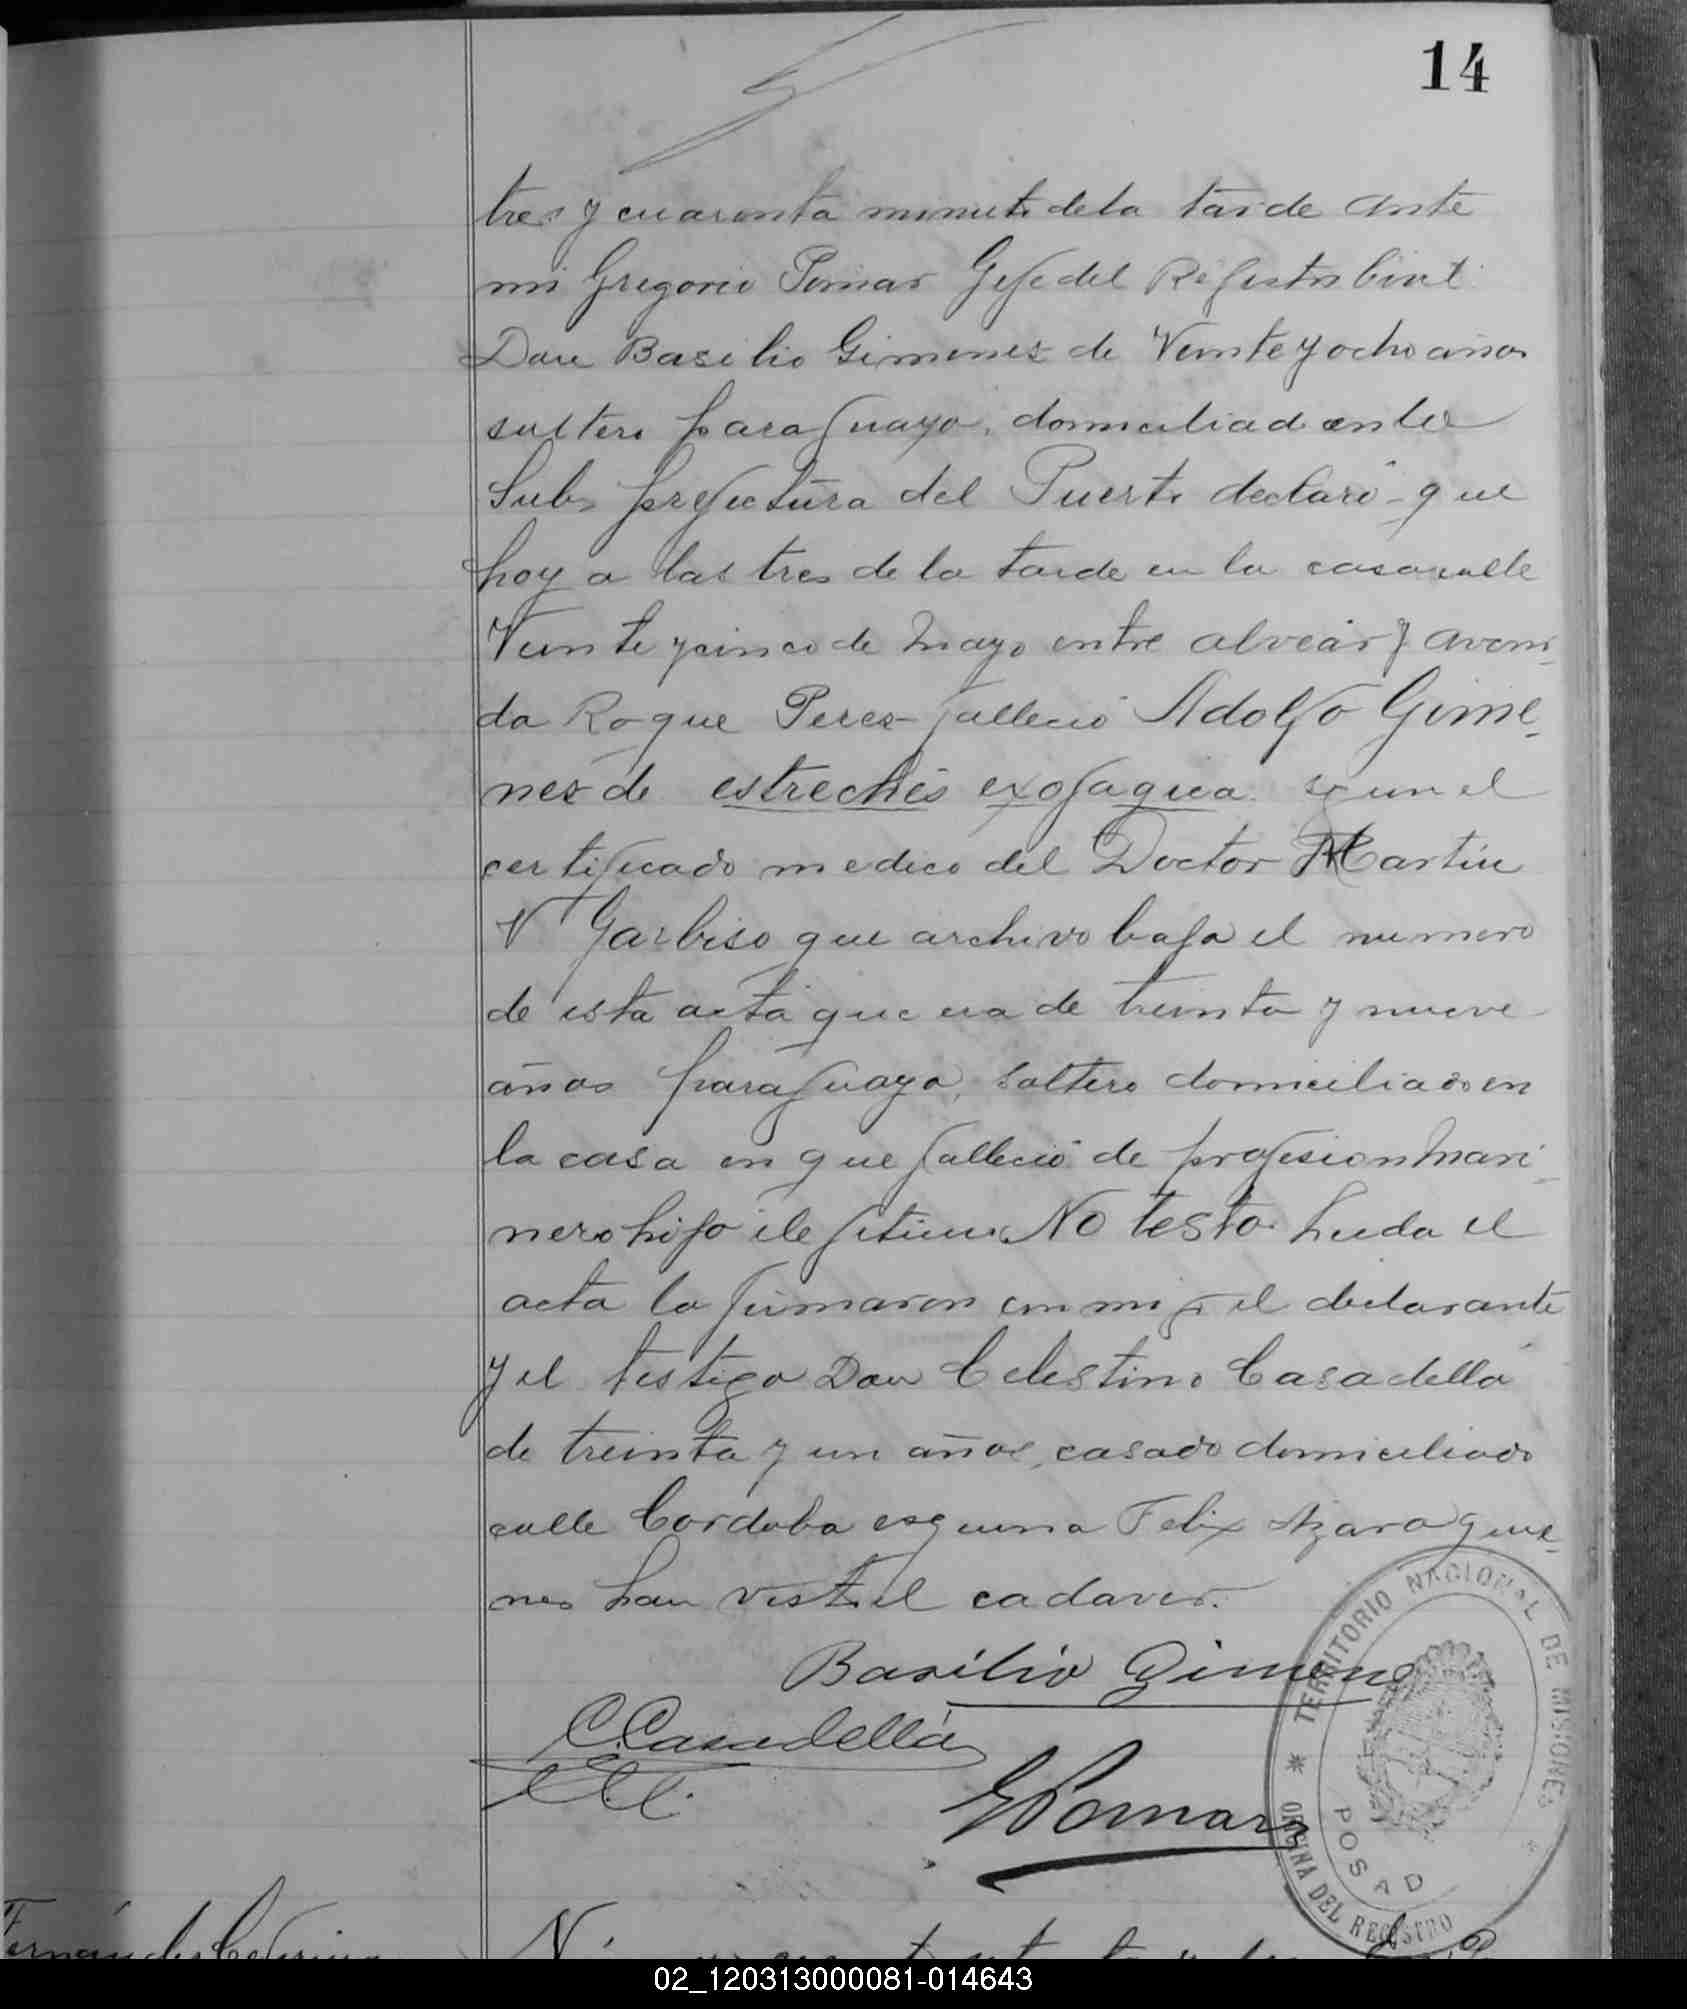 14
tres y cuarenta minuts dela tarde ante
mi Gregorio Pomar Gefe del Registro Civil
Don Basilio Gimenez de Veinte y ocho años
soltero paraguayo, domiciliad en la
Sub prefectura del Puerto declaró que
hoy a las tres de la tarde en la casa calle
Veinte y cinco de Mayo entre alvear y aveni-
da Roque Perez falleció Adolfo Gime-
nez de estrechés exofagica segun el
certificado medico del Doctor Martin
V Garbiso que archivo bajo el numero
de esta acta que era de treinta y nueve
años paraguayo, soltero domiciliado en
la casa en que falleció de profesion mari-
nero hijo ilegitimo No testo. Leida el
acta la firmaron conmigo el declarante
y el testigo Don Celestino Casadellá
de treinta y un años, casado domiciliado
calle Cordoba esquina Felix Azara quie-
nes han visto el cadaver.
Basilio Gimenez
C. Casadellá
GPomar
TERRITORIO NACIONAL DE MISIONES
OFICINA DEL REGISTRO
POSAD
02_120313000081-014643